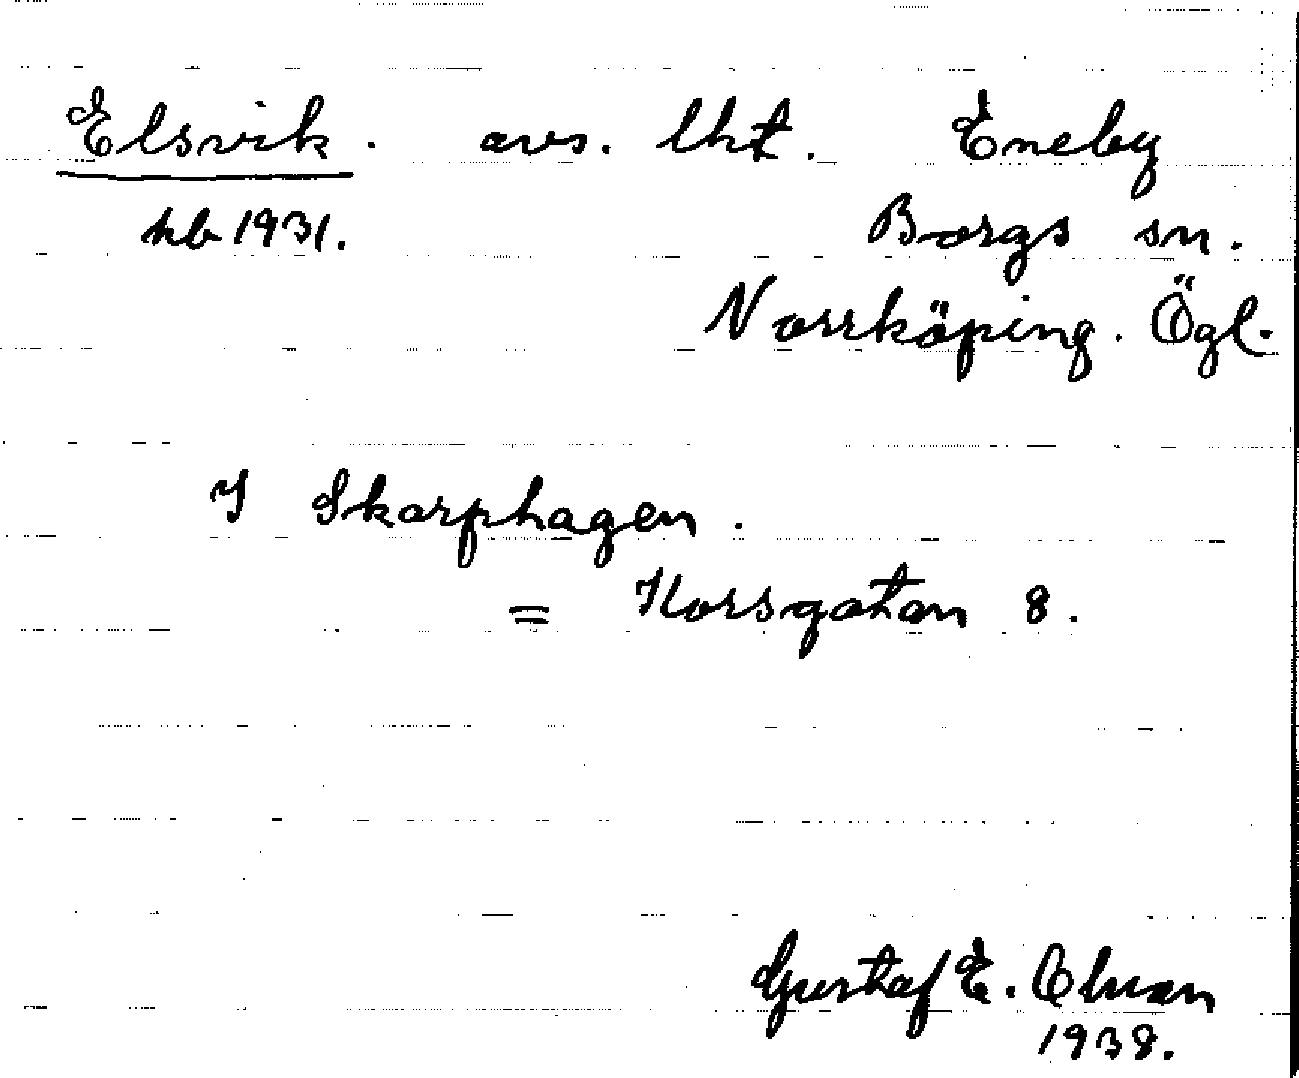 Elsvik. avs. lht. Eneby
kb 1931. Borgs sn.
Norrköping. Ögl.
I Skarphagen.
= Korsgatan 8.
Gustaf E. Olsson
1938.